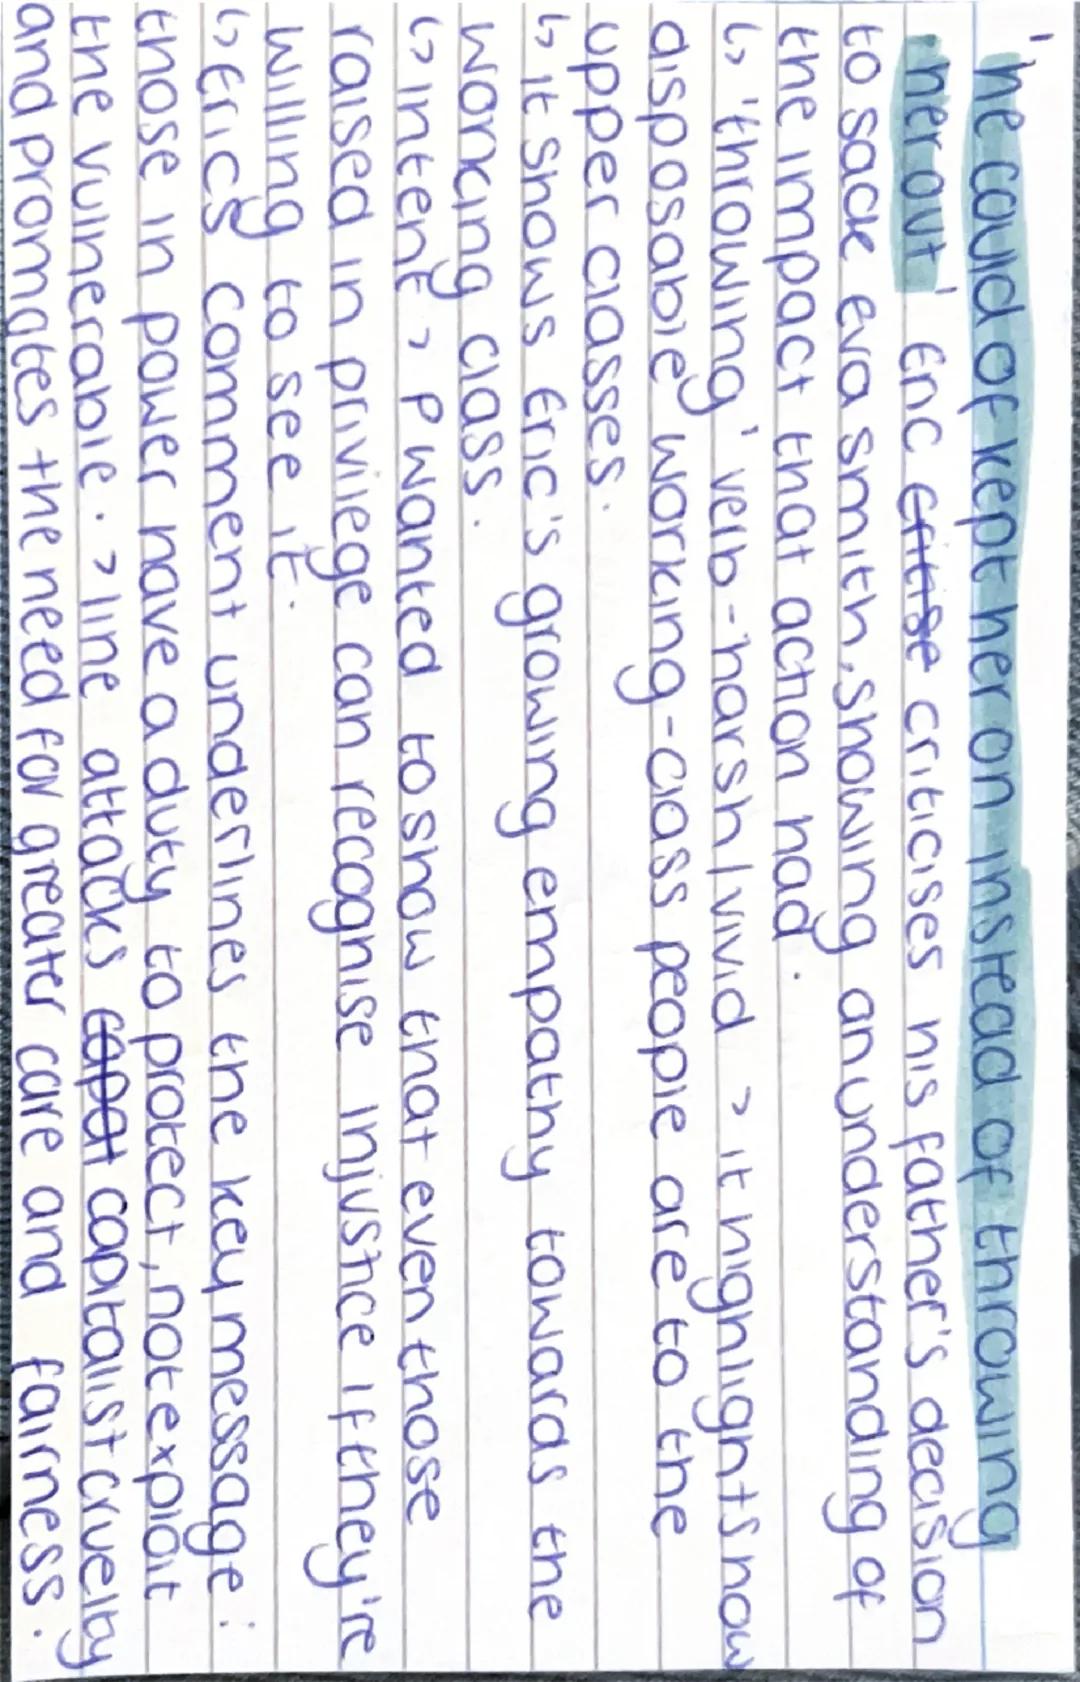 'he could of kept her on instead of throwing
her out' Eric critise criticises his father's decision
to sack eva smith, showing an understanding of
the impact that action had.
↳ 'throwing' verb - harsh/vivid > it highlights how
disposable working-class people are to the
upper classes.
↳ it shows Eric's growing empathy towards the
working class.
↳ intent > P wanted to show that even those
raised in priviege can recognise injustice if they're
willing to see it.
↳ Eric's comment underlines the key message:
those in power have a duty to protect, not exploit
the vulnerable. > line attacks capat capitalist cruelty
and promates the need for greater care and fairness.